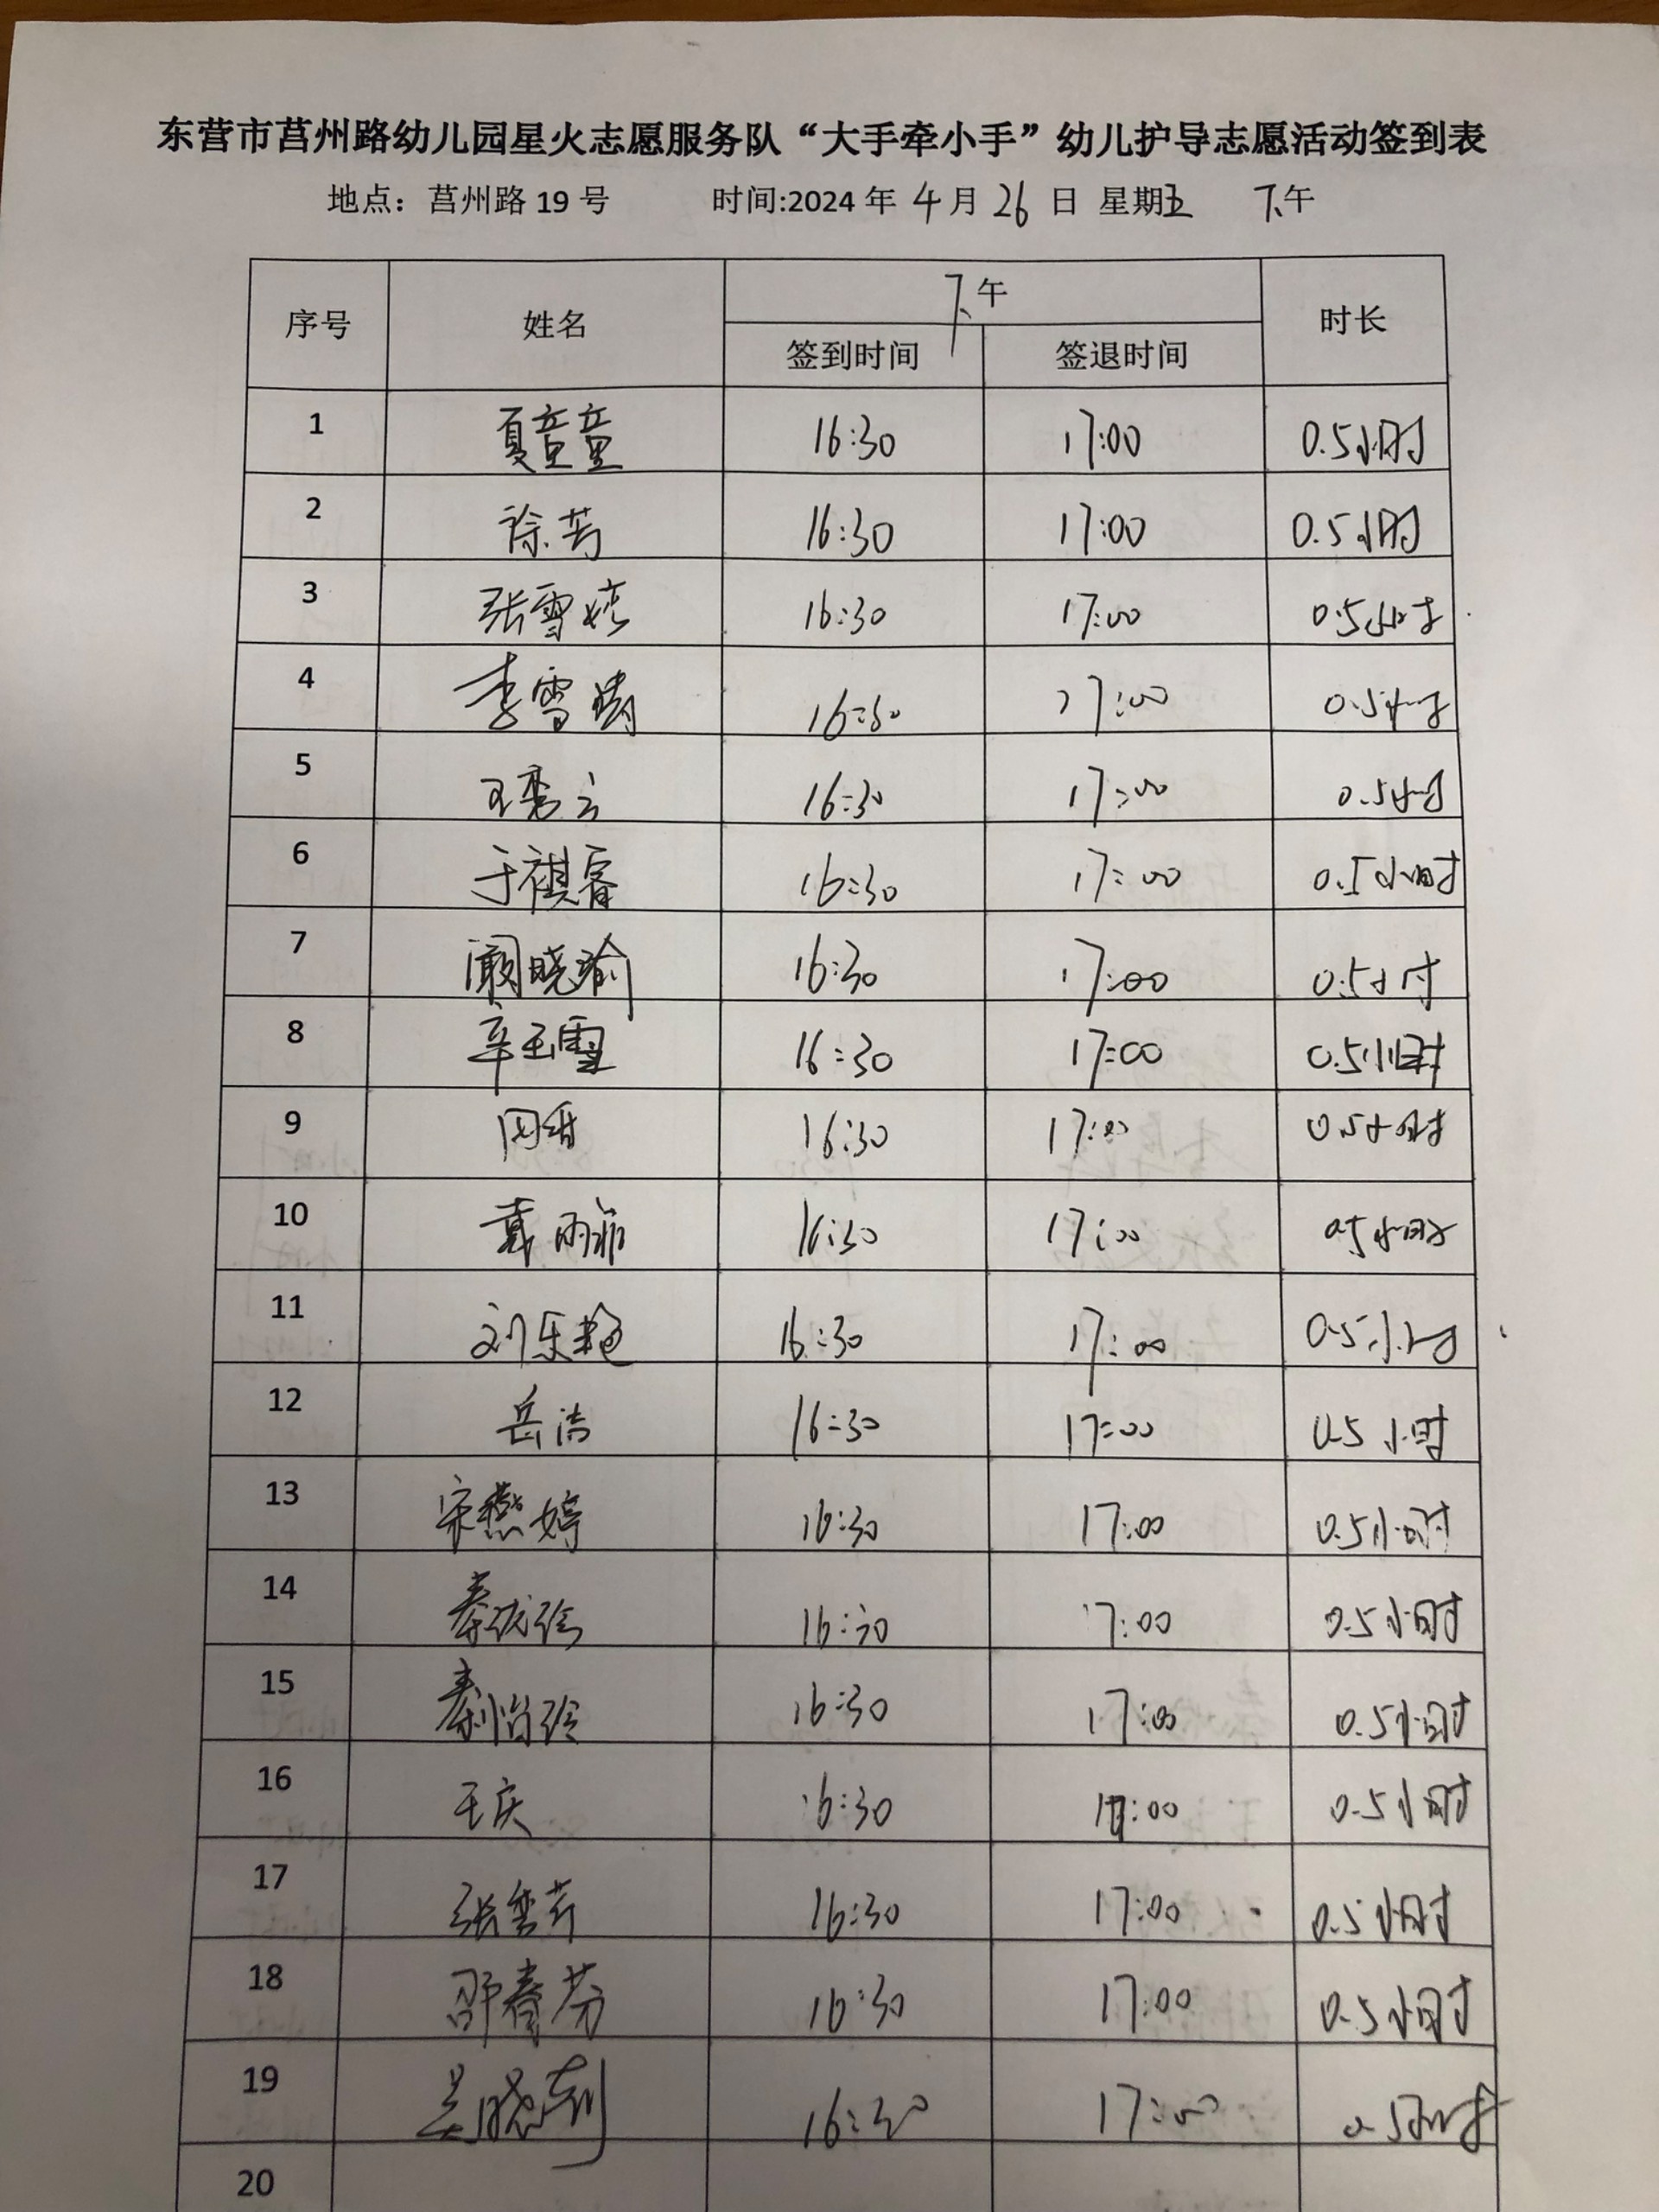 东营市莒州路幼儿园星火志愿服务队“大手牵小手”幼儿护导志愿活动签到表
地点：莒州路 19 号 时间:2024 年 4 月 26 日 星期五 下午
序号 姓名 下午 时长
签到时间 签退时间
1 夏童童 16:30 17:00 0.5小时
2 徐芳 16:30 17:00 0.5小时
3 张雪婷 16:30 17:00 0.5小时
4 李雪 16:30 17:00 0.5小时
5 王 16:30 17:00 0.5小时
6 于祺睿 16:30 17:00 0.5小时
7 阚晓瑜 16:30 17:00 0.5小时
8 辛玉雪 16:30 17:00 0.5小时
9 16:30 17:00 0.5小时
10 戴雨菲 16:30 17:00 0.5小时
11 刘乐艳 16:30 17:00 0.5小时
12 岳洁 16:30 17:00 0.5小时
13 宋燕婷 16:30 17:00 0.5小时
14 秦 16:30 17:00 0.5小时
15 秦怡 16:30 17:00 0.5小时
16 王庆 16:30 17:00 0.5小时
17 张雪芹 16:30 17:00 0.5小时
18 邵春芬 16:30 17:00 0.5小时
19 吴晓 16:30 17:00 0.5小时
20